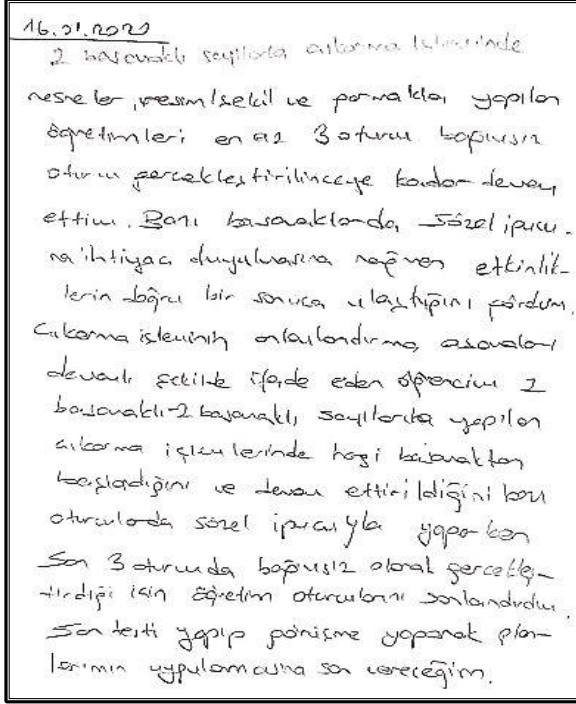 16.01.2020
2 basamaklı sayılarla çıkarma işleminde
nesneler, resim/şekil ve parmakla yapılan
öğretimleri en az 3 oturum bağımsız
oturum gerçekleştirilinceye kadar devam
ettim. Bazı basamaklarda, sözel ipucu-
na ihtiyaç duyulmasına rağmen etkinlik-
lerin doğru bir sonuca ulaştığını gördüm.
Çıkarma işleminin anlamlandırma, aşamaları
devamlı şekilde ifade eden öğrencim 2
basamaklı-2 basamaklı sayılarda yapılan
çıkarma işlemlerinde hangi basamaktan
başladığını ve devam ettirildiğini bazı
oturumlarda sözel ipucuyla yaparken
son 3 oturumda bağımsız olarak gerçekleş-
tirdiği için öğretim oturumlarını sonlandırdım.
Son testi yapıp görüşme yaparak plan-
larımın uygulamasına son vereceğim.